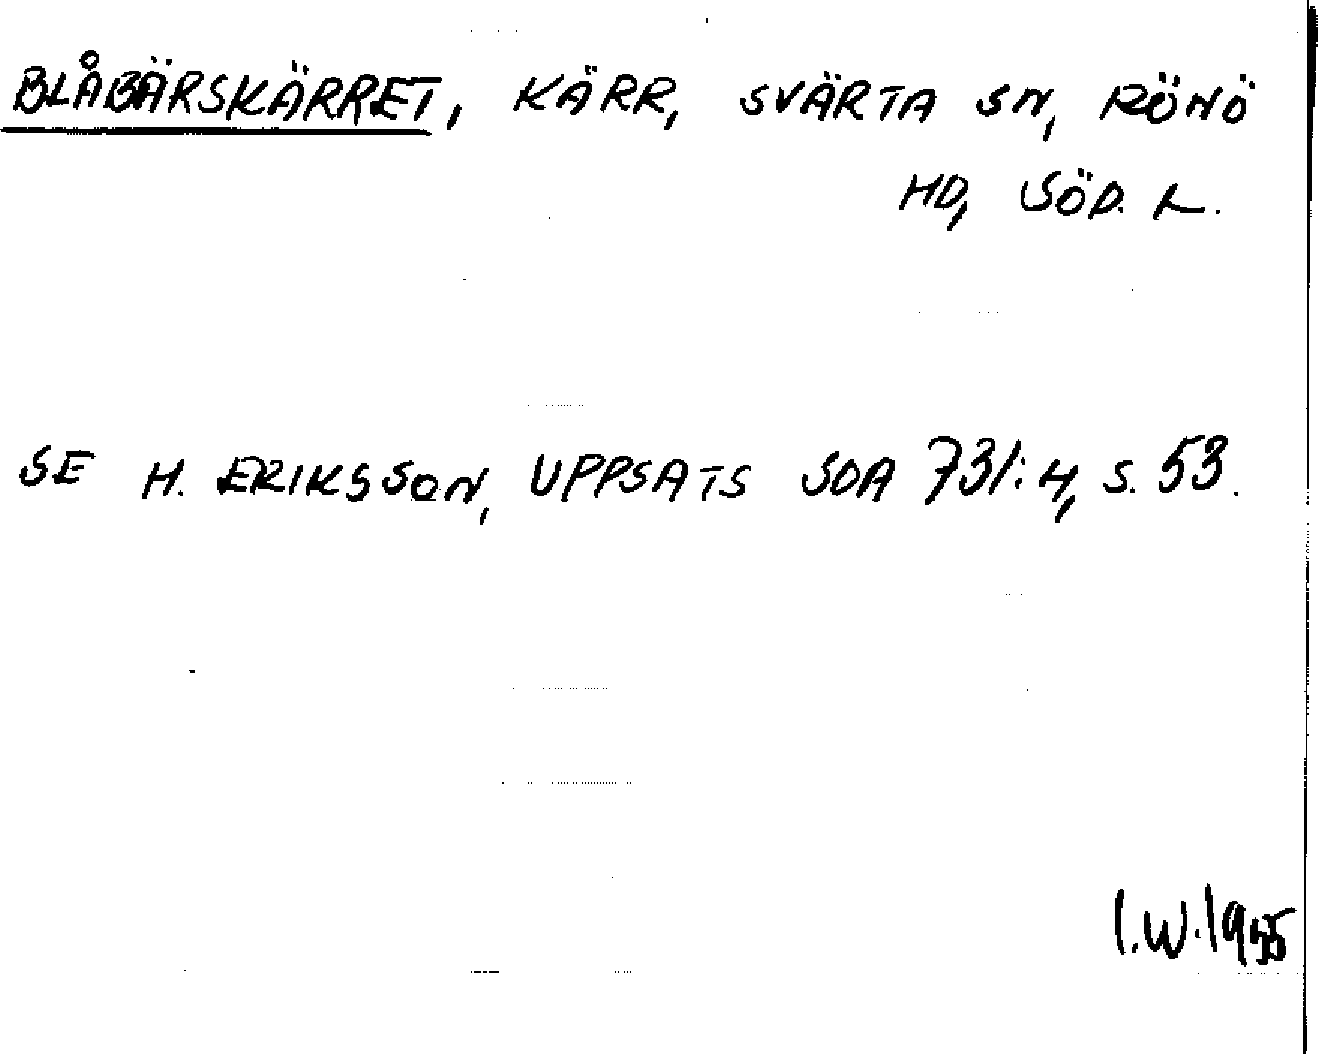 BLÅBÄRSKÄRRET, KÄRR, SVÄRTA SN, RÖNÖ
HD, SÖD. L.
SE H. ERIKSSON, UPPSATS SOA 731:4, S. 53.
I.W. 1955